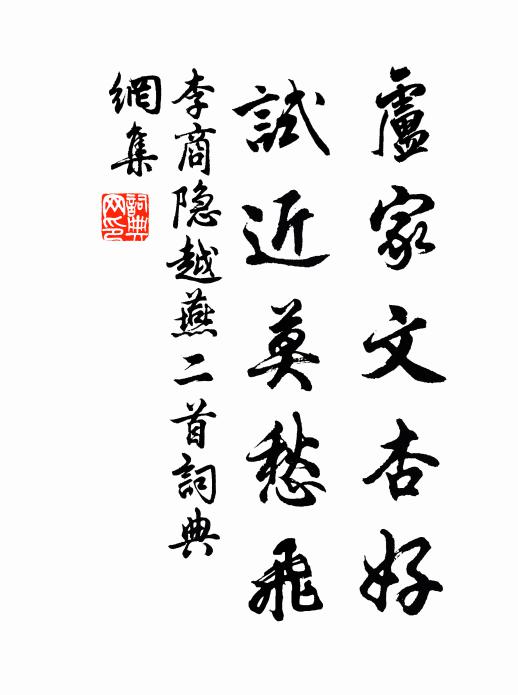 盧家文杏好
試近莫愁飛
李商隐越燕二首詞典
網集
詞典
网印